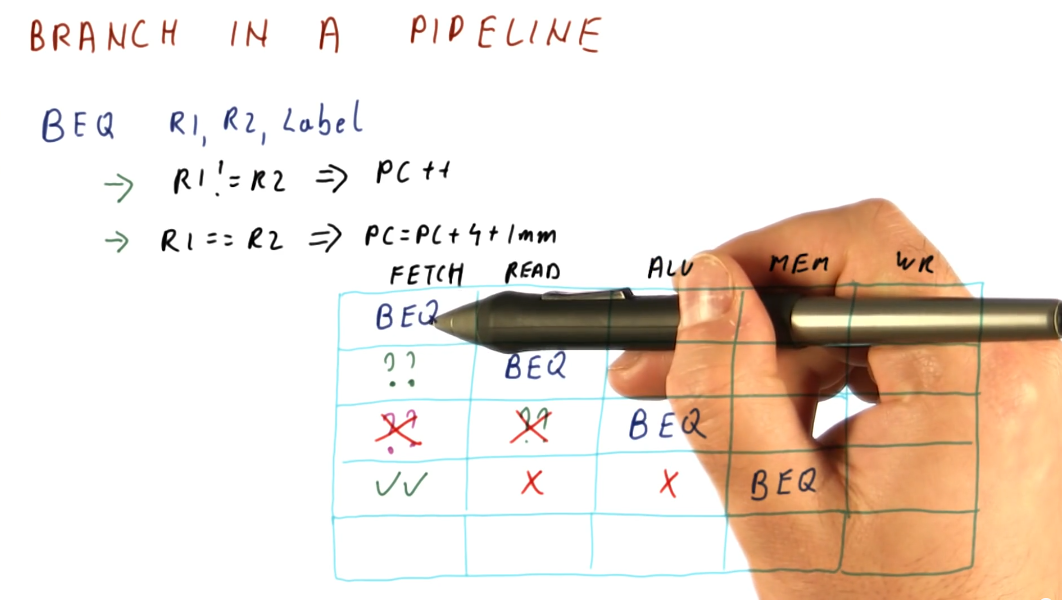 BRANCH IN A PIPELINE
BEQ R1, R2, Label
→ R1 != R2 ⇒ PC++
→ R1 == R2 ⇒ PC=PC+4+Imm
FETCH READ ALU MEM WR
BEQ
?? BEQ
?? ?? BEQ
✓✓ X X BEQ